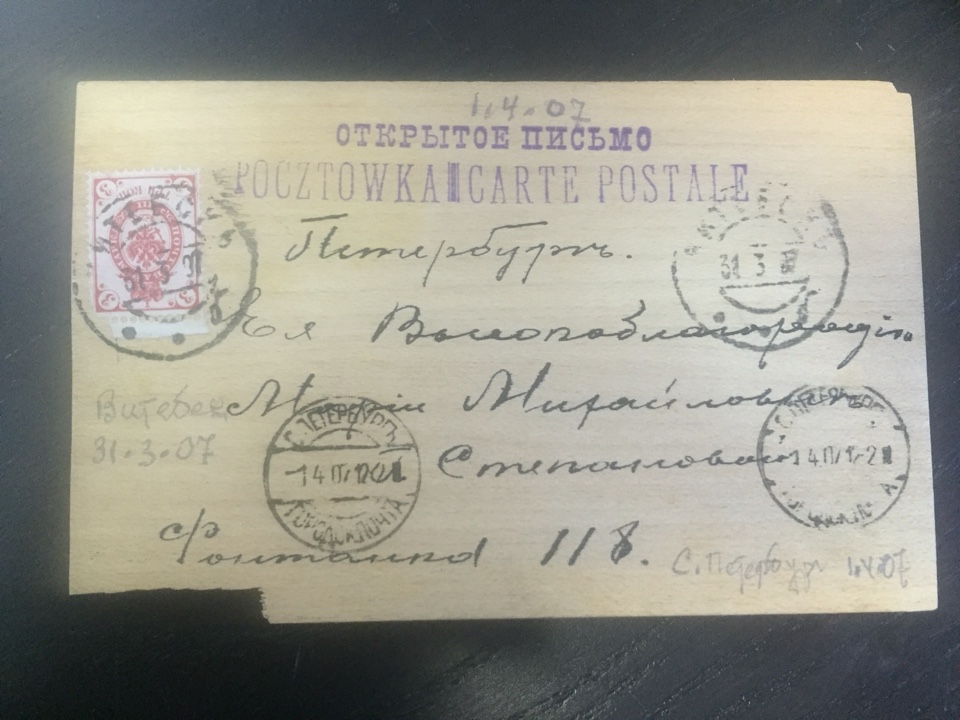 1.4.07
ОТКРЫТОЕ ПИСЬМО
POCZTOWKA CARTE POSTALE
3 3
3 3
31 3
31 3
Петербургъ.
Ея Высокоблагородію
Маріи Михайловнѣ
Степановой
Фонтанка 118.
Витебск
31.3.07
С.ПЕТЕРБУРГЪ
1 4 07
ГОРОДСК.ПОЧТА
1 4 07
С. Петербург 1.4.07